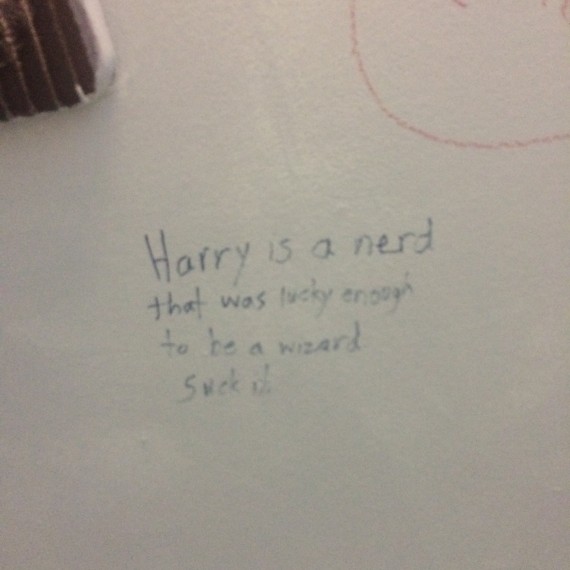 Harry is a nerd
that was lucky enough
to be a wizard
Suck it